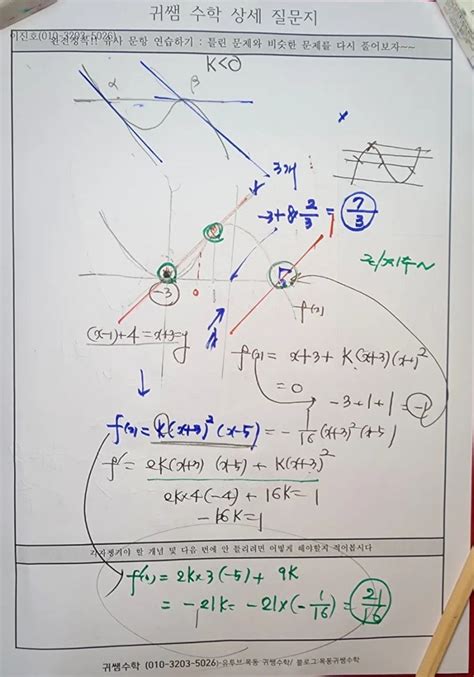 귀쌤 수학 상세 질문지
이진호(010-3203-5026)
완전정복!! 유사 문항 연습하기 : 틀린 문제와 비슷한 문제를 다시 풀어보자~~
K<0
α β
3개
-3+8 2/3 = 7/3
-3
f(x)
(x-1)+4=x+3=y
f(x)= x+3+ K(x+3)(x-1)²
=0
-3+1+1 = -1
f(x)=K(x+3)²(x-5)=-1/16(x+3)²(x-5)
f'= 2K(x+3)(x-5)+K(x+3)²
2K×4(-4)+16K=1
-16K=1
각자챙겨야 할 개념 및 다음 번에 안 틀리려면 어떻게 해야할지 적어봅시다
f'(0)=2K×3(-5)+9K
=-21K=-21×(-1/16)=21/16
귀쌤수학 (010-3203-5026)-유투브:목동 귀쌤수학/ 블로그:목동귀쌤수학